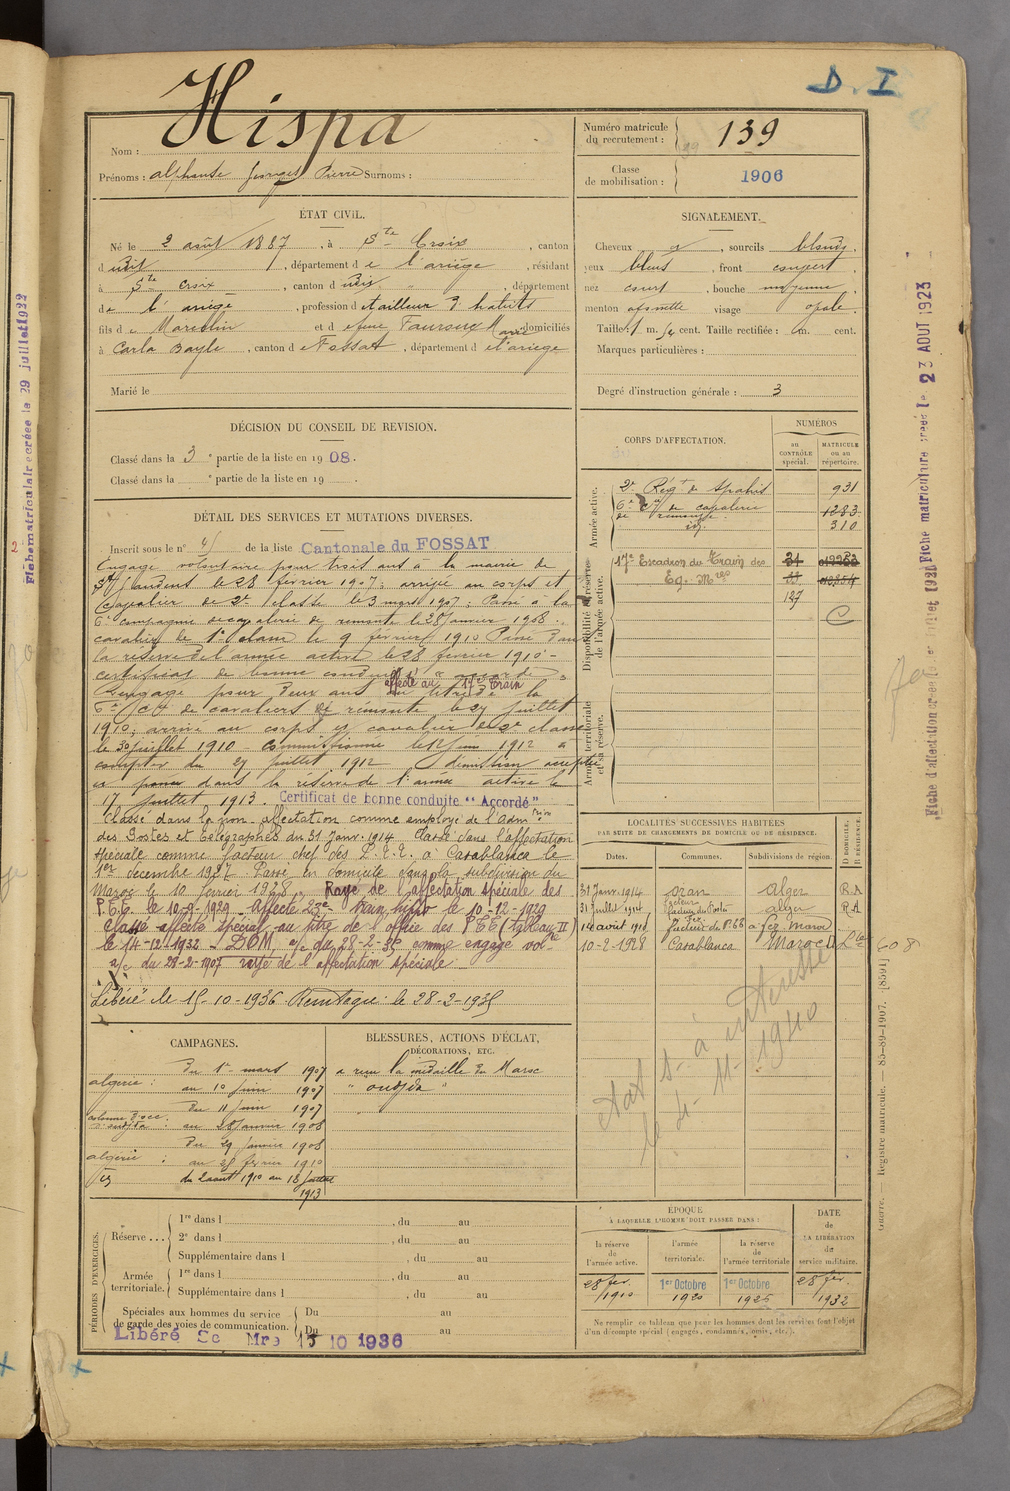 D. I
Hispa
Nom :
Prénoms : alphonse georges Pierre Surnoms :
Numéro matricule du recrutement : 139
Classe de mobilisation : 1906
ÉTAT CIVIL.
Né le 2 août 1887, à Ste Croix, canton
d, département de l'ariège, résidant
à Ste Croix, canton d, département
de l'ariège, profession de tailleur d'habits
fils de Marcelin et de feue domiciliés
à Carla Bayle, canton de Fossat, département de l'ariege
Marié le
SIGNALEMENT.
Cheveux, sourcils blonds.
yeux bleus, front couvert,
nez court, bouche moyenne,
menton visage ovale.
Taille : 1 m. cent. Taille rectifiée : m. cent.
Marques particulières :
Degré d'instruction générale : 3
DÉCISION DU CONSEIL DE REVISION.
Classé dans la 3e partie de la liste en 1908.
Classé dans la e partie de la liste en 19 .
DÉTAIL DES SERVICES ET MUTATIONS DIVERSES.
Inscrit sous le n° de la liste Cantonale du FOSSAT
Engagé volontaire pour trois ans à la mairie de
St Gaudens le 28 février 1907 ; arrivé au corps et
cavalier de 2e classe le 3 mars 1907 ; Passé à la
6e compagnie de cavalerie de remonte le 28 Janvier 1908.
cavalier de 1e classe le 9 février 1910 Passé dans
la réserve de l'armée active le 28 février 1910 -
certificat de bonne conduite accordé
affecté au 17e Train
Rengagé pour deux ans au titre de la
6e Cie de cavaliers de remonte le 27 juillet
1910 ; arrivé au corps et cavalier de 2e classe
le 30 juillet 1910 - Commissionné le 12 juin 1912 à
compter du 27 juillet 1912 démission acceptée
et passé dans la réserve de l'armée active le
17 juillet 1913. Certificat de bonne conduite "Accordé"
Classé dans la non affectation comme employé de l'Admtion
des Postes et Télégraphes du 31 Janv. 1914 Classé dans l'affectation
spéciale comme facteur chef des P.T.T. à Casablanca le
1er décembre 1927. Passé en domicile dans la subdivision du
Maroc le 10 février 1928. Rayé de l'affectation spéciale des
P.T.T. le 10-9-1929. Affecté train hippo le 10-12-1929
Classé affecté spécial au titre de l'office des PTT (tableau II)
le 14-12-1932 - DOM, a/c du 28-2-35 comme engagé vol
a/c du 28-2-1907 rayé de l'affectation spéciale
Libéré le 15-10-1936. le 28-2-1935
CORPS D'AFFECTATION.
NUMÉROS
au CONTRÔLE spécial.
MATRICULE ou au répertoire.
Armée active.
2e Régt de Spahis 931
6e Cie de cavalerie de remonte. 1283
id. 310
Disponibilité et réserve de l'armée active.
17e Escadron du Train des Eq. Mres
127
C
Armée territoriale et sa réserve.
LOCALITÉS SUCCESSIVES HABITÉES
PAR SUITE DE CHANGEMENTS DE DOMICILE OU DE RÉSIDENCE.
Dates. Communes. Subdivisions de région. D DOMICILE. R RÉSIDENCE.
31 Janv. 1914 oran Alger R.A
31 juillet 1914 alger R.A
14 août 1918 à fez maroc
10-2-1928 Casablanca Maroc D
état s. à intéressé
le 4-11-1940
CAMPAGNES.
algerie : Du 1er mars 1907
au 10 juin 1907
Du 11 juin 1907
au 28 janvier 1908
Du 29 janvier 1908
algerie : au 28 février 1910
du 2 août 1910 au 18 juillet
1913
BLESSURES, ACTIONS D'ÉCLAT,
DÉCORATIONS, ETC.
a reçu la médaille du Maroc
" oudjda "
PÉRIODES D'EXERCICES.
Réserve ... 1re dans l , du au
2e dans l , du au
Supplémentaire dans l , du au
Armée territoriale. 1re dans l , du au
Supplémentaire dans l , du au
Spéciales aux hommes du service Du au
de garde des voies de communication. Du au
Libéré Sce Mre 15 10 1936
ÉPOQUE
À LAQUELLE L'HOMME DOIT PASSER DANS :
la réserve de l'armée active.
l'armée territoriale.
la réserve de l'armée territoriale
DATE de LA LIBÉRATION du service militaire.
28 fév. 1910
1er Octobre 1920
1er Octobre 1926
28 fév. 1932
Ne remplir ce tableau que pour les hommes dont les services font l'objet
d'un décompte spécial (engagés, condamnés, omis, etc.).
Fiche matriculaire créée le 23 AOUT 1923
Guerre. Registre matricule. — 85-89-1907. [8591]
608
Fiche matriculaire créée le 29 juillet 1922